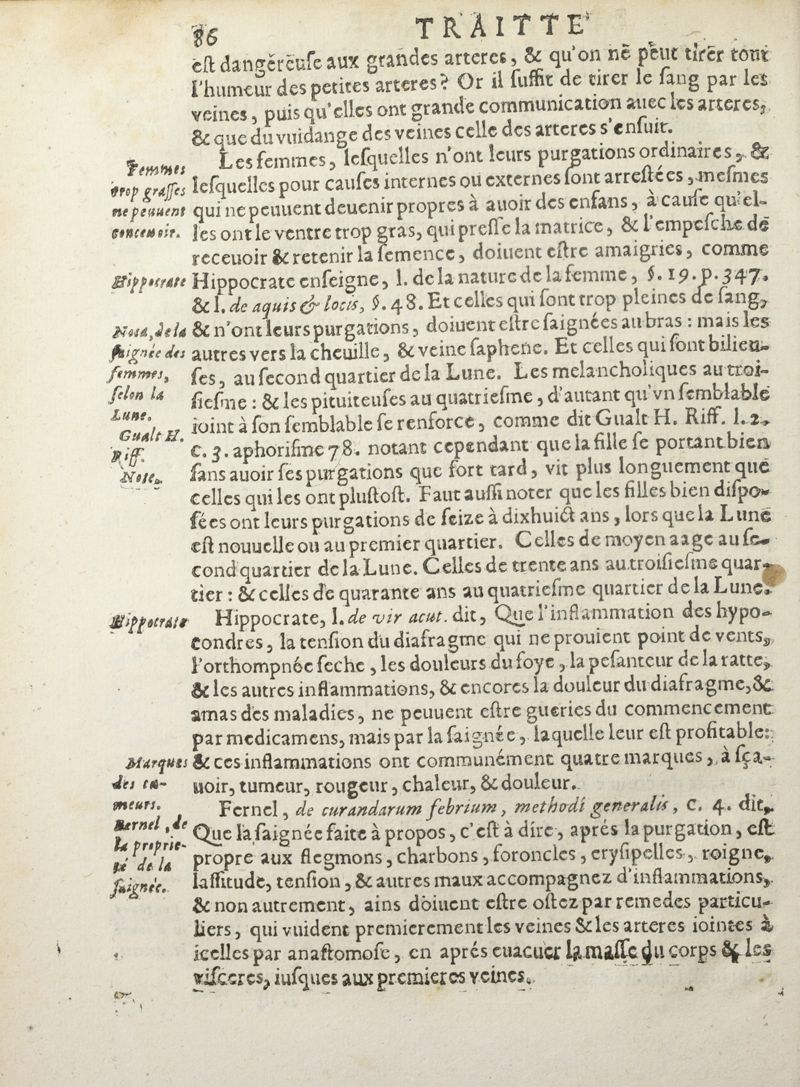 86
TRAITTÉ
eſt dangéreuſe aux grandes arteres, & qu'on ne peut tirer tout
l'humeur des petites arteres? Or il ſuffit de tirer le ſang par les
veines, puis qu'elles ont grande communication auec les arteres,
& que du vuidange des veines celle des arteres s'enſuit.
Femmes
trop graſſes
ne peuuent
conceuoir.
Les femmes, leſquelles n'ont leurs purgations ordinaires, &
leſquelles pour cauſes internes ou externes ſont arreſtées, meſmes
qui ne peuuent deuenir propres à auoir des enfans, à cauſe qu'el-
les ont le ventre trop gras, qui preſſe la matrice, & l'empeſche de
receuoir & retenir la ſemence, doiuent eſtre amaigries, comme
Hippocrate
Hippocrate enſeigne, l. de la nature de la femme, §. 19. p. 347.
& l. de aquis & locis, §. 48. Et celles qui ſont trop pleines de ſang,
Nota, de la
ſaignée des
femmes,
ſelon la
Lune.
Gualt H.
Riff.
Note.
& n'ont leurs purgations, doiuent eſtre ſaignées au bras: mais les
autres vers la cheuille, & veine ſaphene. Et celles qui ſont bilieu-
ſes, au ſecond quartier de la Lune. Les melancholiques au troi-
ſieſme: & les pituiteuſes au quatrieſme, d'autant qu'vn ſemblable
ioint à ſon ſemblable ſe renforce, comme dit Gualt H. Riff. l. 2.
c. 3. aphoriſme 78. notant cependant que la fille ſe portant bien
ſans auoir ſes purgations que fort tard, vit plus longuement que
celles qui les ont pluſtoſt. Faut auſſi noter que les filles bien diſpo-
ſées ont leurs purgations de ſeize à dixhuict ans, lors que la Lune
eſt nouuelle ou au premier quartier. Celles de moyen aage au ſe-
cond quartier de la Lune. Celles de trente ans au troiſieſme quar-
tier: & celles de quarante ans au quatrieſme quartier de la Lune.
Hippocrate
Hippocrate, l. de vir acut. dit, Que l'inflammation des hypo-
condres, la tenſion du diafragme qui ne prouient point de vents,
l'orthompnée ſeche, les douleurs du foye, la peſanteur de la ratte,
& les autres inflammations, & encores la douleur du diafragme, &
amas des maladies, ne peuuent eſtre gueries du commencement
par medicamens, mais par la ſaignée, laquelle leur eſt profitable:
Marques
des tu-
meurs.
& ces inflammations ont communément quatre marques, à ſça-
uoir, tumeur, rougeur, chaleur, & douleur.
Fernel, de
la proprie-
té de la
ſaignée.
Fernel, de curandarum febrium, methodi generalis, c. 4. dit,
Que la ſaignée faite à propos, c'eſt à dire, aprés la purgation, eſt
propre aux flegmons, charbons, foroncles, eryſipelles, roigne,
laſſitude, tenſion, & autres maux accompagnez d'inflammations,
& non autrement, ains doiuent eſtre oſtez par remedes particu-
liers, qui vuident premierement les veines & les arteres iointes à
icelles par anaſtomoſe, en aprés euacuer la maſſe du corps & les
viſceres, iuſques aux premieres veines.